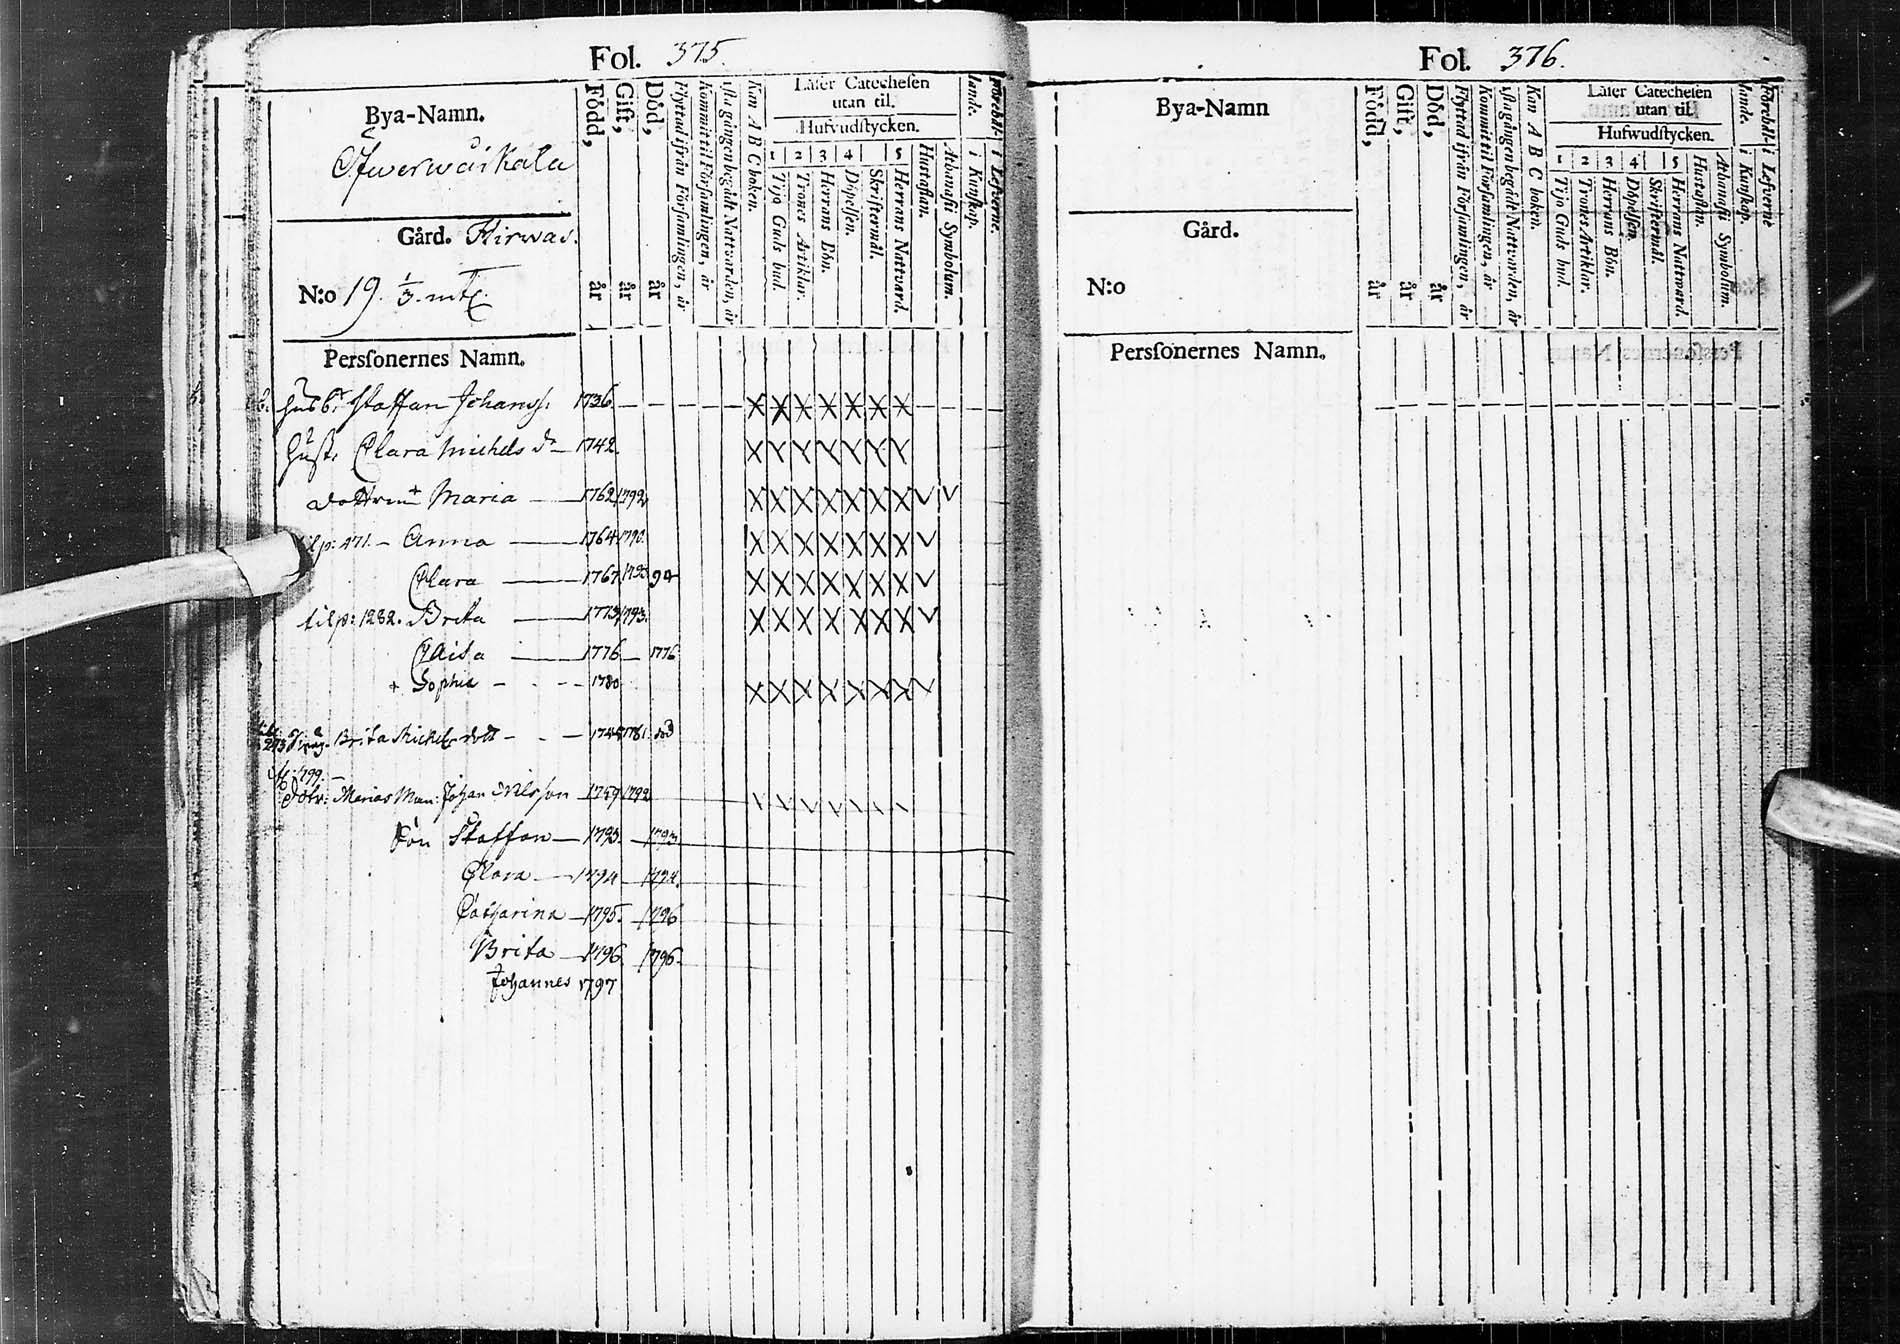 Fol. 375.
Bya-Namn.
Gård. Kirwas.
N:o 19. 1/3. mtl.
Född, år
Gift, år
Död, år
Flyttad ifrån Församlingen, år
Kommit til Församlingen, år
1sta gången begådt Nattvarden, år
Kan A B C boken.
Låser Catechesen
utan til.
Hufvudstycken.
1 2 3 4 5
Tijo Guds bud.
Trones Artiklar.
Herrans Bön.
Döpelsen.
Skriftermål.
Herrans Nattvard.
Hustaflan.
Athanasii Symbolum.
i Kunskap.
i Lefverne.
Personernes Namn.
Husb. Staffan Johanss. 1736.
Hust. Clara Michels dr 1742.
+ Maria 1762 1792
til p: 471. Anna 1764 1790.
Clara 1767 94
til p: 1282. Brita 1773 1793.
Caisa 1776 1776
+ Sophia 1780
Brita Michelsdott 1781 död
1799.
Dotr. Marias Man: Johan Nilsson 1759 1792
Son Staffan 1793. 1793.
Clara 1794 1794.
Catharina 1795. 1796
Brita 1796. 1796.
Johannes 1797
Fol. 376.
Bya-Namn
Gård.
N:o
Född, år
Gift, år
Död, år
Flyttad ifrån Församlingen, år
Kommit til Församlingen, år
1sta gången begådt Nattvarden, år
Kan A B C boken.
Låser Catechesen
utan til.
Hufwudstycken.
1 2 3 4 5
Tijo Guds bud.
Trones Artiklar.
Herrans Bön.
Döpelsen.
Skriftermål.
Herrans Nattward.
Hustaflan.
Athanasii Symbolum.
i Kunskap.
i Lefverne
Personernes Namn.